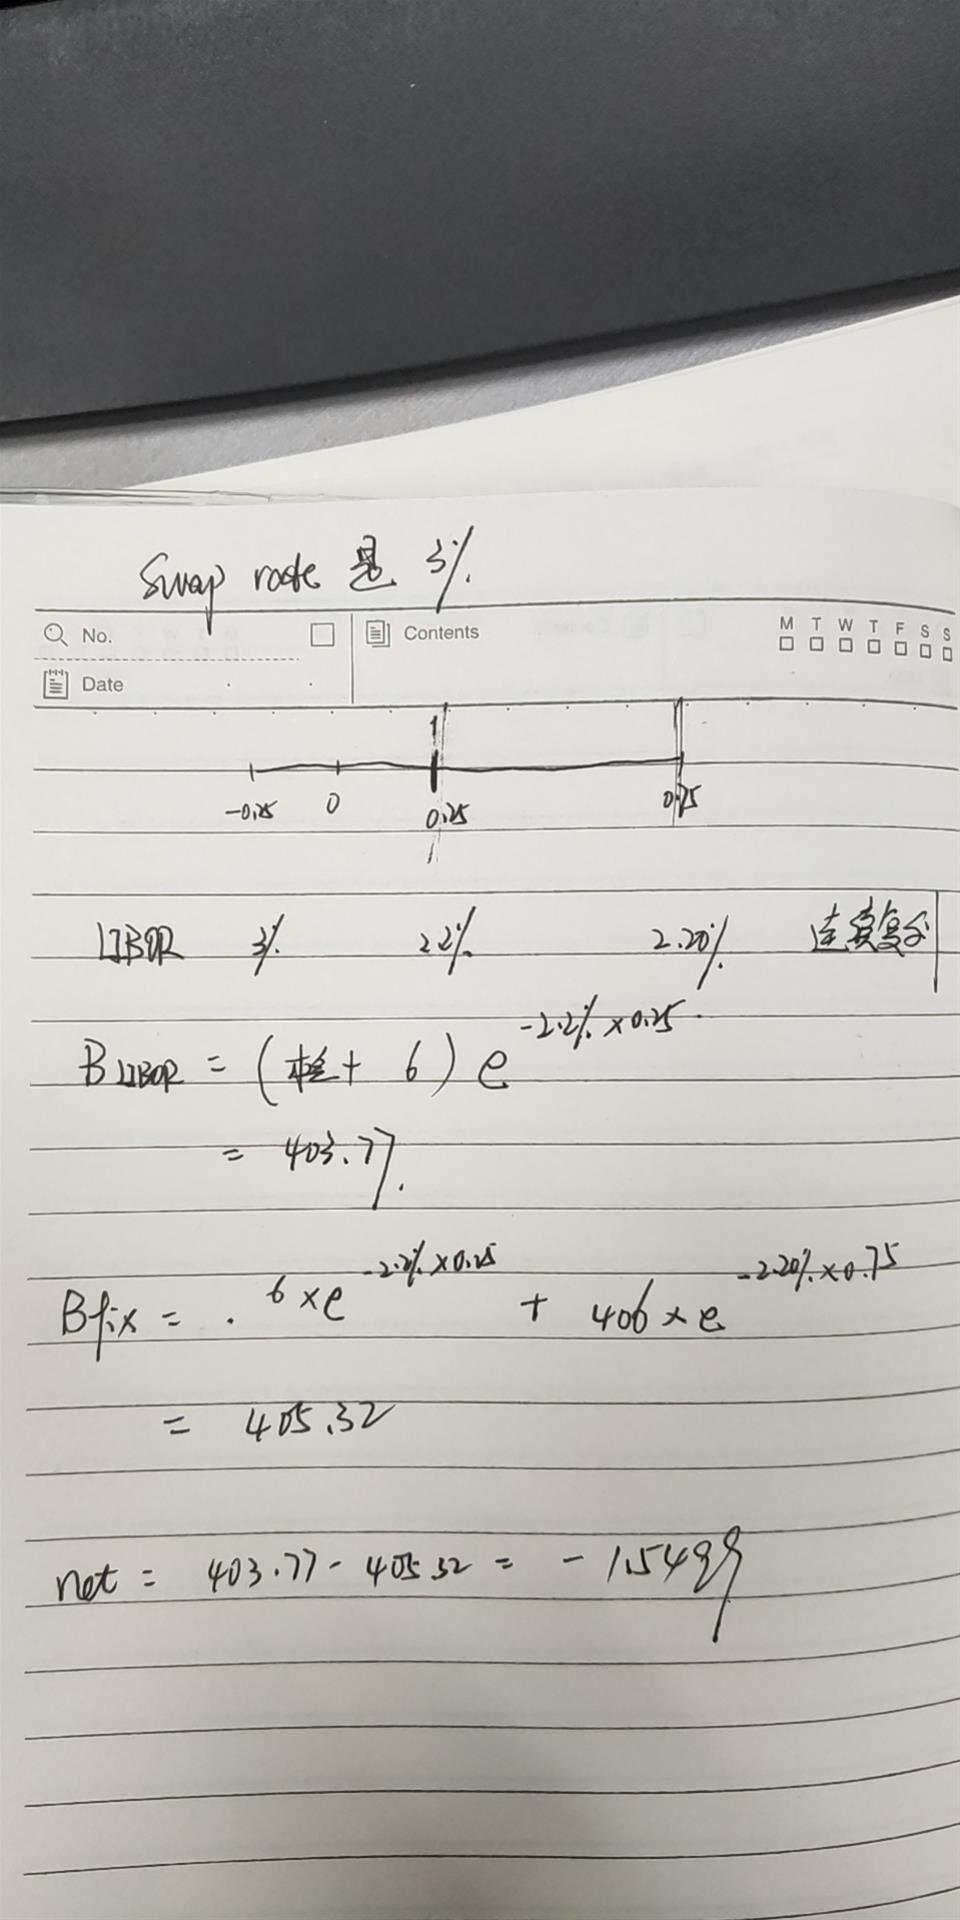 Swap rate 是 3%
No.
Contents
M T W T F S S
Date
-0.25 0 0.25 0.75
LIBOR 3% 2.2% 2.20% 连续复利
B LIBOR = (本金 + 6) e -2.2% × 0.25
= 403.77.
Bfix = 6 × e -2.2% × 0.25 + 406 × e -2.20% × 0.75
= 405.32
net = 403.77 - 405.32 = - 1.5499